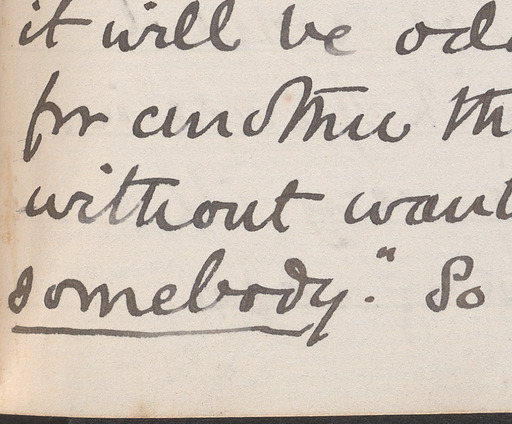 it will be odd
for another th
without want
somebody." So